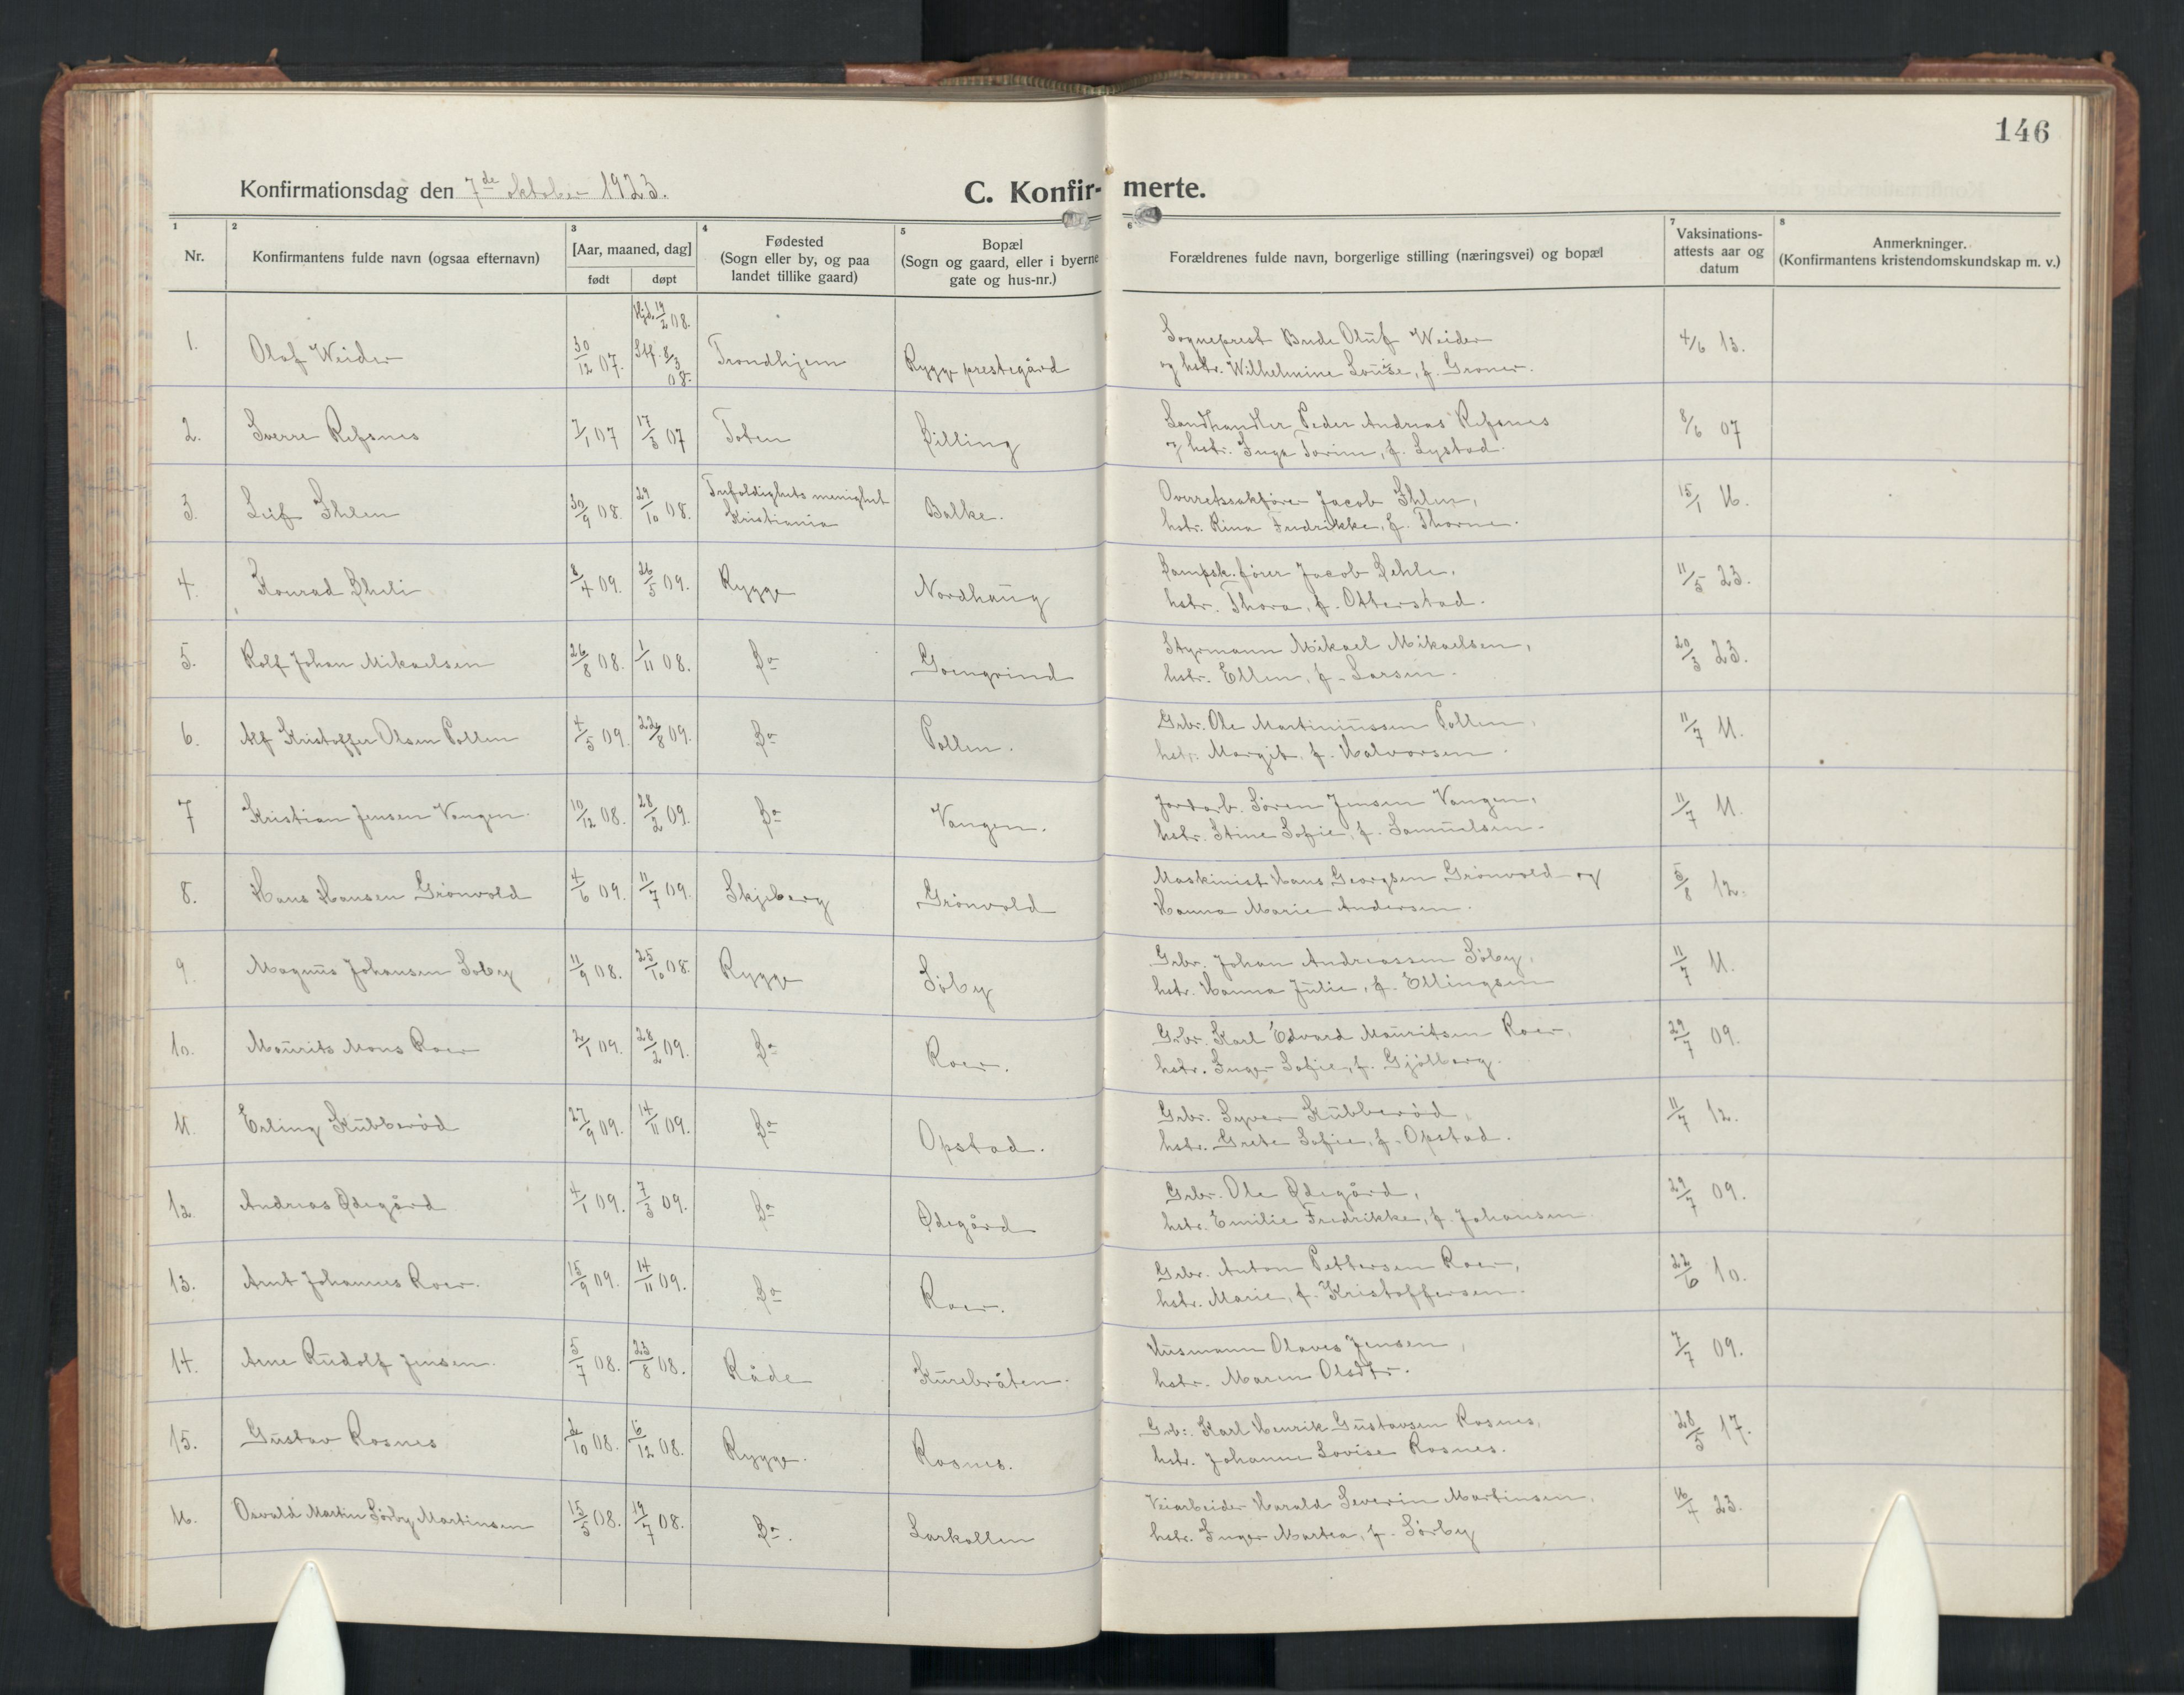 146
Konfirmationsdag den 7de oktober 1923.
C. Konfir- merte.
1 2 3 4 5 6 7 8
Nr.
Konfirmantens fulde navn (ogsaa efternavn)
[Aar, maaned, dag]
født døpt
Fødested
(Sogn eller by, og paa
landet tillike gaard)
Bopæl
(Sogn og gaard, eller i byerne
gate og hus-nr.)
Forældrenes fulde navn, borgerlige stilling (næringsvei) og bopæl
Vaksinations-
attests aar og
datum
Anmerkninger.
(Konfirmantens kristendomskundskap m. v.)
1. Olaf Weider 30/12 07. Hjd. 19/2 08. Stf. 8/3 08. Trondhjem Rygge prestegård Sogneprest Bude Oluf Weider
og hstr. Wilhelmine Louise, f. Groner. 4/6 13.
2. Sverre Refsnes 7/1 07 17/3 07 Toten Dilling Landhandler Peder Andreas Refsnes
og hstr. Inga Torine, f. Lystad. 8/6 07
3. Leif Ihlen 30/9 08. 29/10 08. Trefoldighets menighet
Kristiania Balke. Overretssakfører Jacob Ihlen,
hstr. Rina Fredrikke, f. Thorne. 15/1 16.
4. Konrad Dheli 8/4 09. 26/5 09. Rygge Nordhaug Dampsk.fører Jacob Dehle,
hstr. Thora, f. Otterstad. 11/5 23.
5. Rolf Johan Mikaelsen 26/8 08. 1/11 08. Do Goengrind Styrmann Mikael Mikaelsen,
hstr. Ellen, f. Larsen. 20/3 23.
6. Alf Kristoffer Olsen Pollen 4/5 09. 22/8 09. Do Pollen. Grbr. Ole Martiniussen Pollen,
hstr. Margit, f. Halvorsen. 11/7 11.
7 Kristian Jensen Vangen. 10/12 08. 28/2 09. Do Vangen. Jordarb. Søren Jensen Vangen,
hstr. Stine Sofie, f. Samuelsen. 11/7 11.
8. Hans Hansen Grönvold 4/6 09. 11/7 09. Skjeberg Grönvold Maskinist Hans Georgsen Grönvold og
Hanna Marie Andersen. 5/8 12.
9. Magnus Johansen Soby 11/9 08. 25/10 08. Rygge Söby Grbr. Johan Andreassen Söby,
hstr. Hanna Julie, f. Ellingsen 11/7 11.
10. Maurits Mons Roer 2/1 09. 28/2 09. Do Roer. Grbr. Karl Edvard Mauritsen Roer,
hstr. Inger Sofie, f. Gjölberg. 29/7 09.
11. Erling Kubberöd 27/9 09. 14/11 09. Do Opstad. Grbr. Syver Kubberöd,
hstr. Grete Sofie, f. Opstad. 11/7 12.
12. Andreas Ødegård 4/1 09. 7/3 09. Do Ødegård Grbr. Ole Ødegård,
hstr. Emilie Fredrikke, f. Johansen 29/7 09.
13. Arnt Johannes Roer. 15/9 09. 14/11 09. Do Roer. Grbr. Anton Pettersen Roer,
hstr. Marie, f. Kristoffersen. 22/6 10.
14. Arne Rudolf Jensen. 5/7 08. 23/8 08. Råde Kurebråten. Husmann Olaves Jensen,
hstr. Maren Olsdtr. 7/7 09.
15. Gustav Rosnes 2/10 08. 6/12 08. Rygge. Rosnes. Grb: Karl Henrik Gustavsen Rosnes,
hstr. Johanne Lovise Rosnes. 28/5 17.
16. Osvald Martin Sörby Martinsen 15/5 08. 19/7 08. Do. Larkollen Veiarbeider Harald Severin Martinsen,
hstr. Inger Martea, f. Sörby 16/7 23.